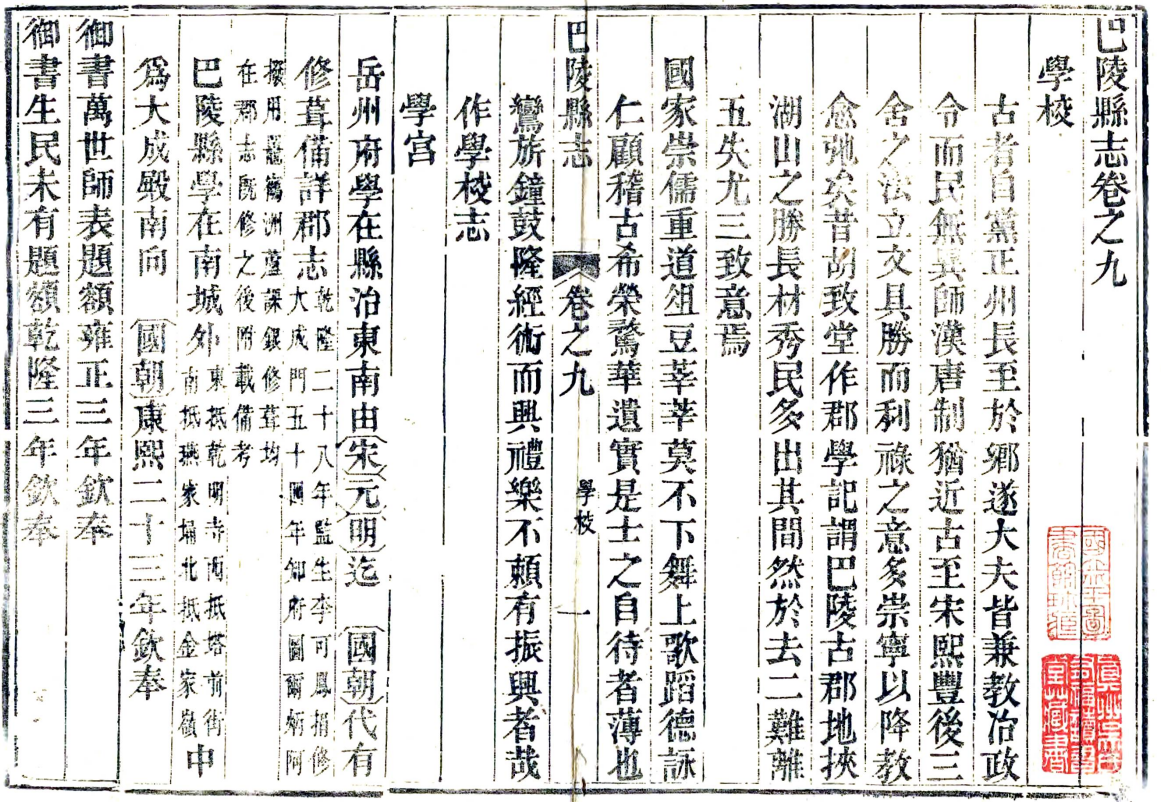 巴陵縣志卷之九
學校
古者自黨正州長至於鄉遂大夫皆兼教冶政
令而民無異師漢唐制猶近古至宋熙豐後三
舍之法立文具勝而利祿之意多崇寧以降教
愈弛矣昔胡致堂作郡學記謂巴陵古郡地挾
湖山之勝長材秀民多出其間然於去二難離
五失尤三致意焉
國家崇儒重道俎豆莘莘莫不下舞上歌蹈德詠
仁顧稽古希榮騖華遺實是士之自待者薄也
巴陵縣志 卷之九 學校 一
鸞旂鐘鼓隆經術而興禮樂不賴有振興者哉
作學校志
學宮
岳州府學在縣治東南由宋元明迄 國朝代有
修葺備詳郡志乾隆二十八年監生李可鳳捐修
大成門五十四年知府圖爾炳阿
撥用瀛鶴洲蘆課銀修葺均
在郡志旣修之後附載備考
巴陵縣學在南城外東抵乾明寺西抵塔前街
南抵燕家埇北抵金家嶺中
爲大成殿南向 國朝康熙二十三年欽奉
御書萬世師表題額雍正三年欽奉
御書生民未有題額乾隆三年欽奉